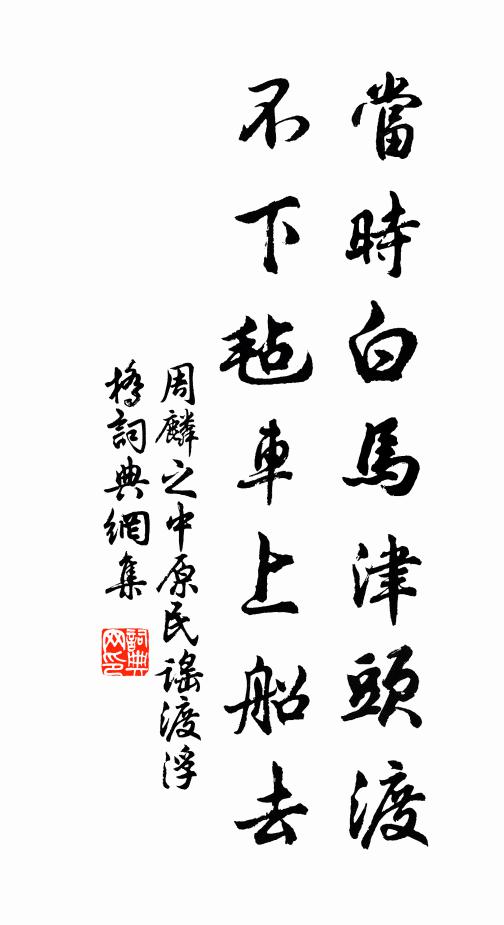 當時白馬津頭渡
不下毡車上船去
周麟之中原民謠渡浮
橋詞典網集
詞典
网印